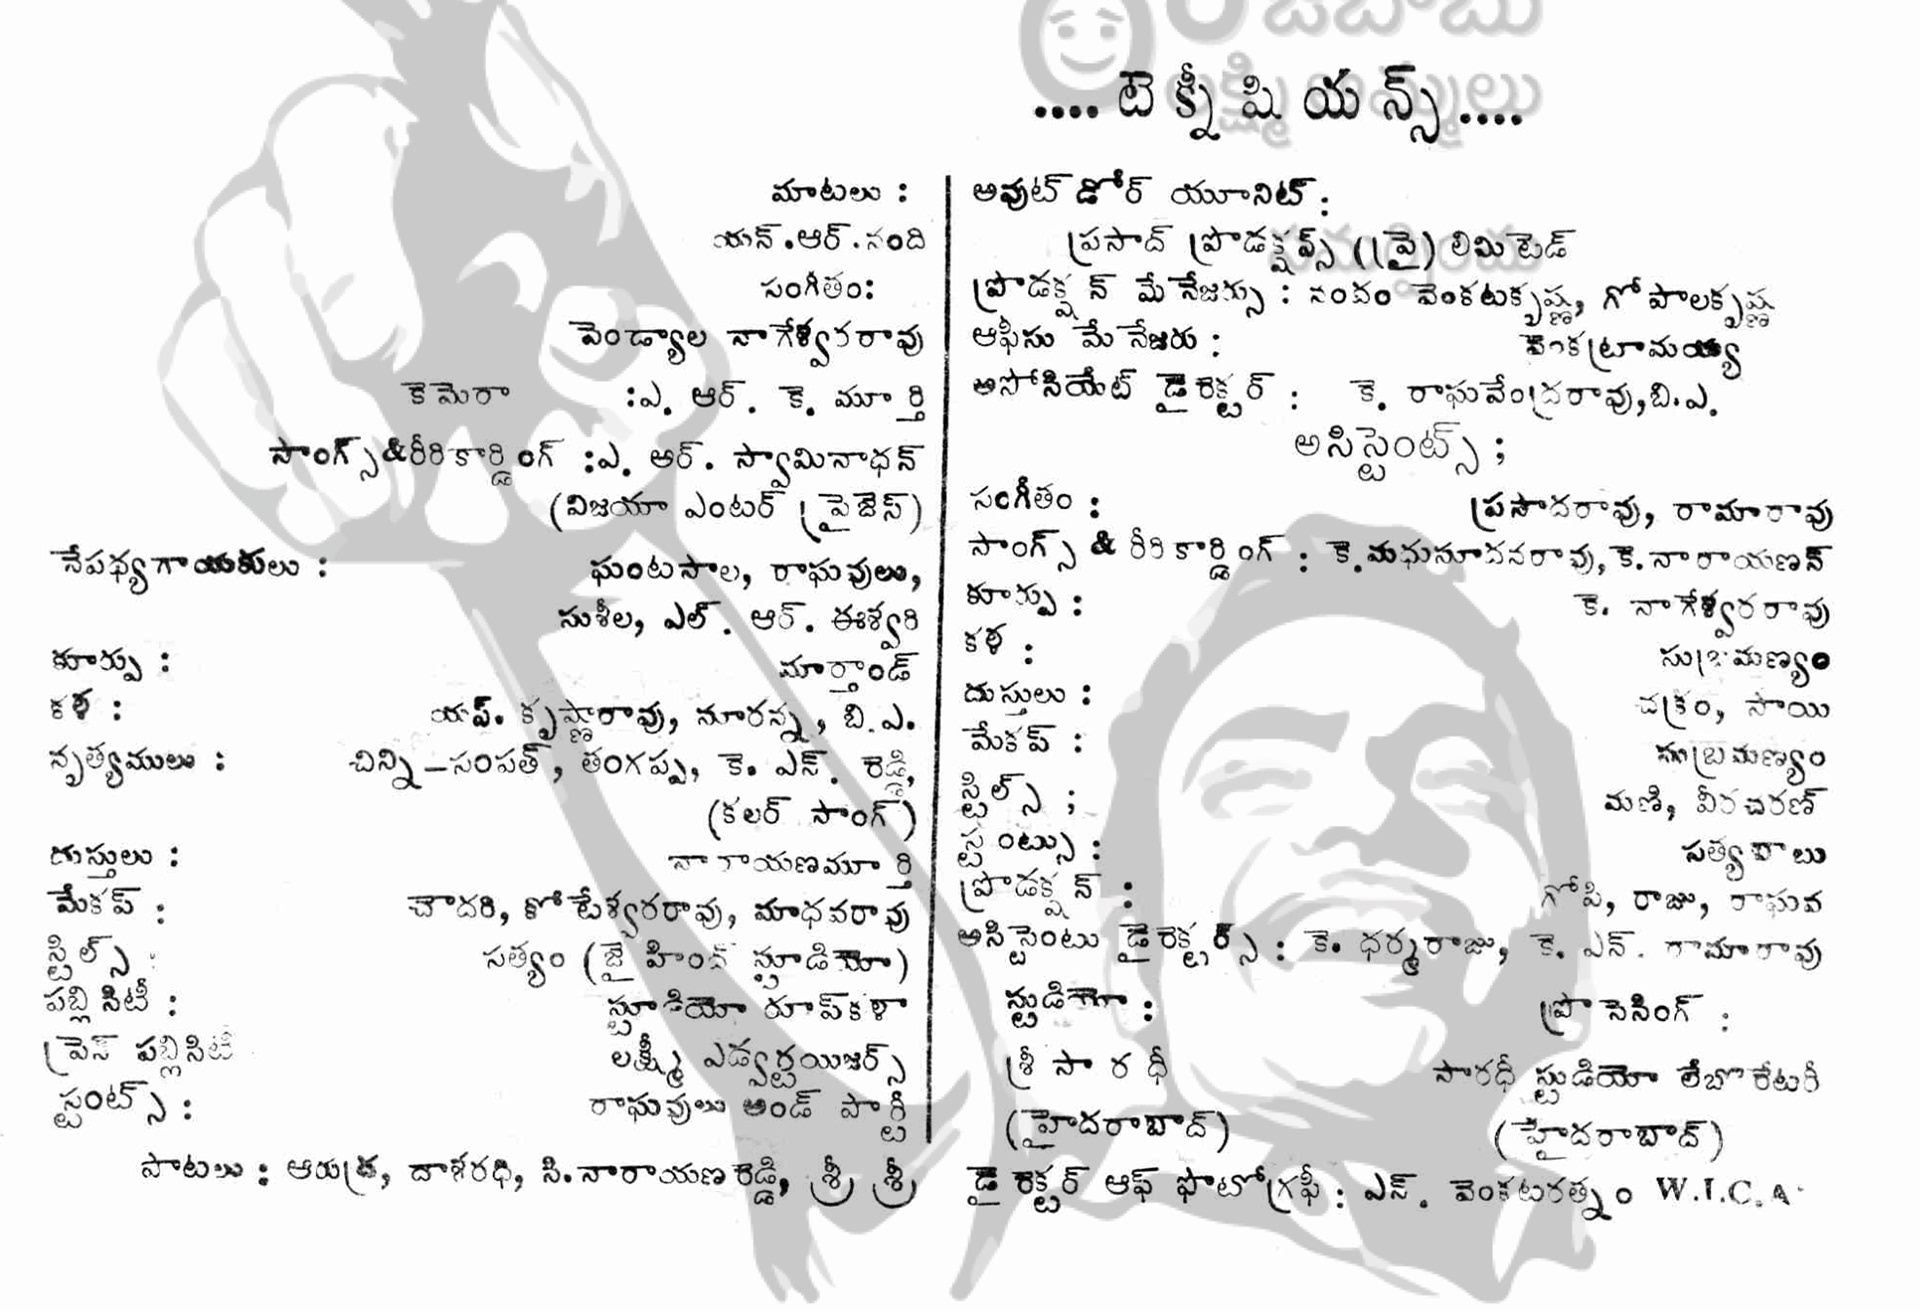 ....టెక్నీషియన్స్....
మాటలు :
యన్.ఆర్.నంది
సంగీతం:
పెండ్యాల నాగేశ్వరరావు
కెమెరా :ఎ. ఆర్. కె. మూర్తి
సాంగ్స్&రీరికార్డింగ్ :ఎ. ఆర్. స్వామినాథన్
(విజయా ఎంటర్ ప్రైజెస్)
నేపథ్యగాయకులు : ఘంటసాల, రాఘవులు,
సుశీల, ఎల్. ఆర్. ఈశ్వరి
కూర్పు : మార్తాండ్
కళ : యస్. కృష్ణారావు, సూరన్న, బి.ఎ.
నృత్యములు : చిన్ని-సంపత్, తంగప్ప, కె. ఎస్. రెడ్డి,
(కలర్ సాంగ్)
దుస్తులు : నారాయణమూర్తి
మేకప్ : చౌదరి, కోటేశ్వరరావు, మాధవరావు
స్టిల్స్ : సత్యం (జైహింద్ స్టూడియో)
పబ్లిసిటీ : స్టూడియో రూప్‌కళా
ప్రెస్ పబ్లిసిటీ లక్ష్మీ ఎడ్వర్టయిజర్స్
స్టంట్స్ : రాఘవులు అండ్ పార్టీ
పాటలు : ఆరుద్ర, దాశరధి, సి.నారాయణరెడ్డి, శ్రీ శ్రీ
అవుట్ డోర్ యూనిట్ :
ప్రసాద్ ప్రొడక్షన్స్ (ప్రై) లిమిటెడ్
ప్రొడక్షన్ మేనేజర్సు : నందం వెంకటకృష్ణ, గోపాలకృష్ణ
ఆఫీసు మేనేజరు : వెంకట్రామయ్య
అసోసియేట్ డైరెక్టర్ : కె. రాఘవేంద్రరావు,బి.ఎ.
అసిస్టెంట్స్ ;
సంగీతం : ప్రసాదరావు, రామారావు
సాంగ్స్ & రీరికార్డింగ్ : కె.మధుసూదనరావు, కె.నారాయణన్
కూర్పు : కె. నాగేశ్వరరావు
కళ : సుబ్రమణ్యం
దుస్తులు : చక్రం, సాయి
మేకప్ : సుబ్రమణ్యం
స్టిల్స్ ; మణి, వీరచరణ్
స్టంట్సు : సత్యబాబు
ప్రొడక్షన్ : గోపి, రాజు, రాఘవ
అసిస్టెంటు డైరెక్టర్స్ : కె. ధర్మరాజు, కె. ఎస్. రామారావు
స్టుడియో : ప్రాసెసింగ్ :
శ్రీ సారథీ సారథీ స్టుడియో లేబొరేటరీ
(హైదరాబాద్) (హైదరాబాద్)
డైరెక్టర్ ఆఫ్ ఫొటోగ్రఫీ : ఎస్. వెంకటరత్నం W.I.C.A.